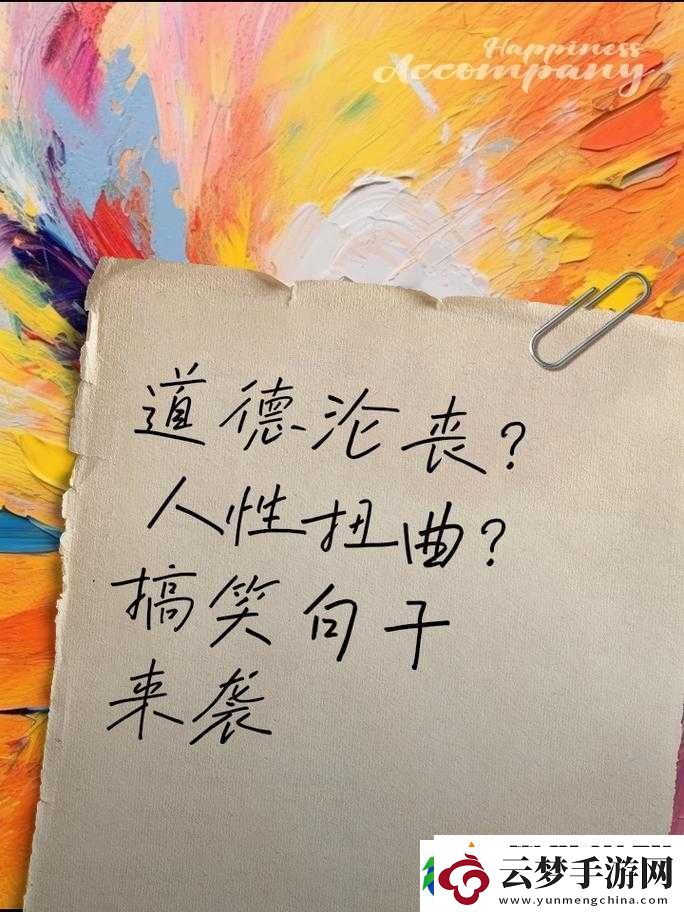 Happiness
Accompany
道德沦丧?
人性扭曲?
搞笑句子
来袭
云梦手游网
www.yunmengchina.com